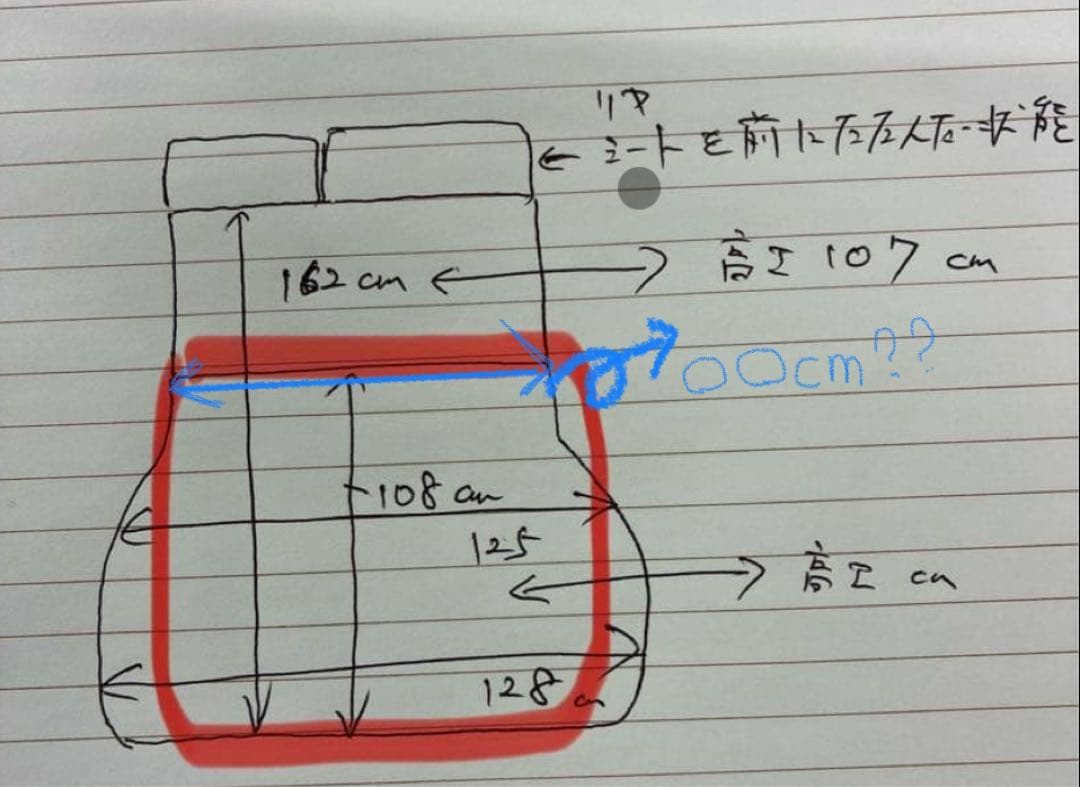 リア
シートを前にたたんだ状態
162cm
高さ107cm
〇〇cm??
108cm
125
高さ cm
128cm